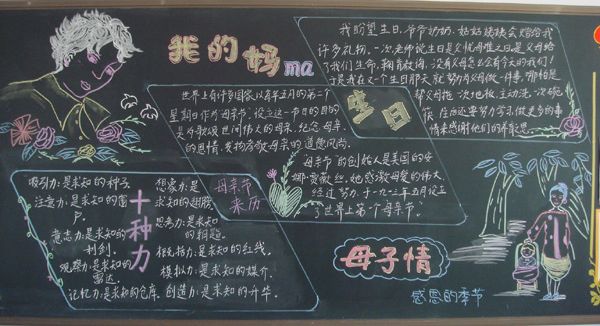 我的妈ma
我盼望生日,爷爷奶奶、姑姑姨姨会给我
许多礼物,一次老师说生日是父忧母难之日是父母给
了我们生命,教育教诲,没有父母怎么会有今天的我们!
于是我在又一个生日那天就努力为父母做一件事,哪怕是
帮父母拖一次地板,主动洗一次碗
筷,在后还要努力学习,做更多的事
情来感谢他们的养育之恩。
生日
世界上有许多国家以每年五月的第二个
星期日作为母亲节。设立这一节日的目的
是为歌颂世间伟大的母亲,纪念母亲
的恩情,发扬孝敬母亲的道德风尚。
母亲节的创始人是美国的安
娜·贾薇丝,她感激母爱的伟大,
经过努力,于一九一三年五月设立
了世界上第一个母亲节。
母亲节
来历
十种力
吸引力:是求知的种子。
注意力:是求知的窗
户。
意志力:是求知的
利剑。
观察力:是求知的
雷达。
记忆力:是求知的仓库。
想象力:是
求知的翅膀。
思考力:是求知
的钥匙。
概括力:是求知的红线。
模拟力:是求知的媒介。
创造力:是求知的升华。
母子情
感恩的季节